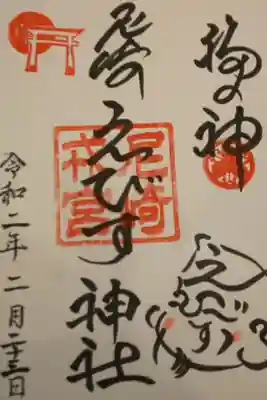 福の神
尼崎えびす神社
尼崎
戎宮
えびす
令和二年二月二十三日